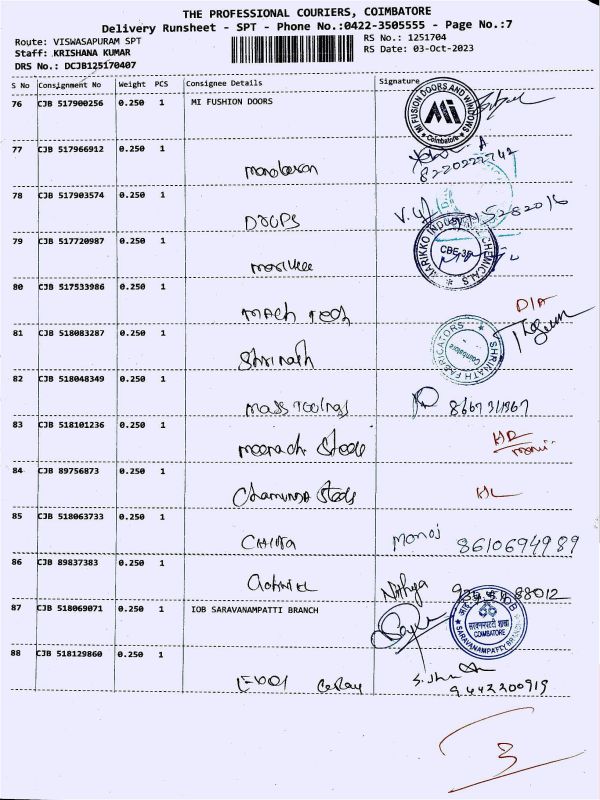 THE PROFESSIONAL COURIERS, COIMBATORE
Delivery Runsheet - SPT - Phone No.:0422-3505555 - Page No.:7
Route: VISWASAPURAM SPT
RS No.: 1251704
Staff: KRISHANA KUMAR
RS Date: 03-Oct-2023
DRS No.: DCJB125170407
S No Consignment No Weight PCS Consignee Details Signature
76 CJB 517900256 0.250 1 MI FUSHION DOORS
MI FUSION DOORS AND WINDOWS
Mi
Coimbatore
77 CJB 517966912 0.250 1
8220222742
78 CJB 517903574 0.250 1
DROPS
79 CJB 517720987 0.250 1
MARIKKO INDUSTRIAL CHEMICALS
80 CJB 517533986 0.250 1
Mach Tech D/A
81 CJB 518083287 0.250 1
Shrinath
SHRINATH FABRICATORS
Coimbatore
82 CJB 518048349 0.250 1
Mass Toolings
83 CJB 518101236 0.250 1
Meenachi Steels
84 CJB 89756873 0.250 1
Chamunda Steels
85 CJB 518063733 0.250 1
CHITRA Manoj 8610694989
86 CJB 89837383 0.250 1
Nithya
87 CJB 518069071 0.250 1 IOB SARAVANAMPATTI BRANCH
IOB
सरवनमपट्टी शाखा
COIMBATORE
SARAVANAMPATTI BRANCH
88 CJB 518129860 0.250 1
9442200919
3